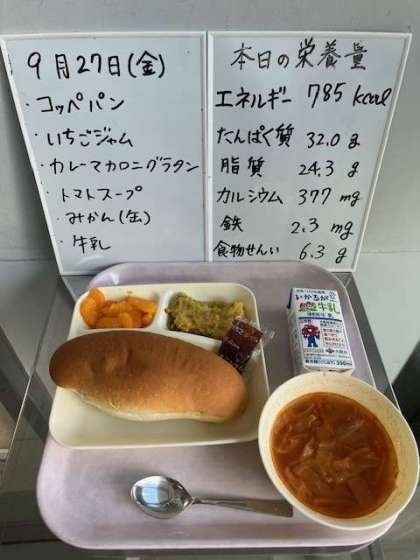 9月27日(金)
・コッペパン
・いちごジャム
・カレーマカロニグラタン
・トマトスープ
・みかん(缶)
・牛乳
本日の栄養量
エネルギー 785 kcal
たんぱく質 32.0 g
脂質 24.3 g
カルシウム 377 mg
鉄 2.3 mg
食物せんい 6.3 g
いかるが
牛乳